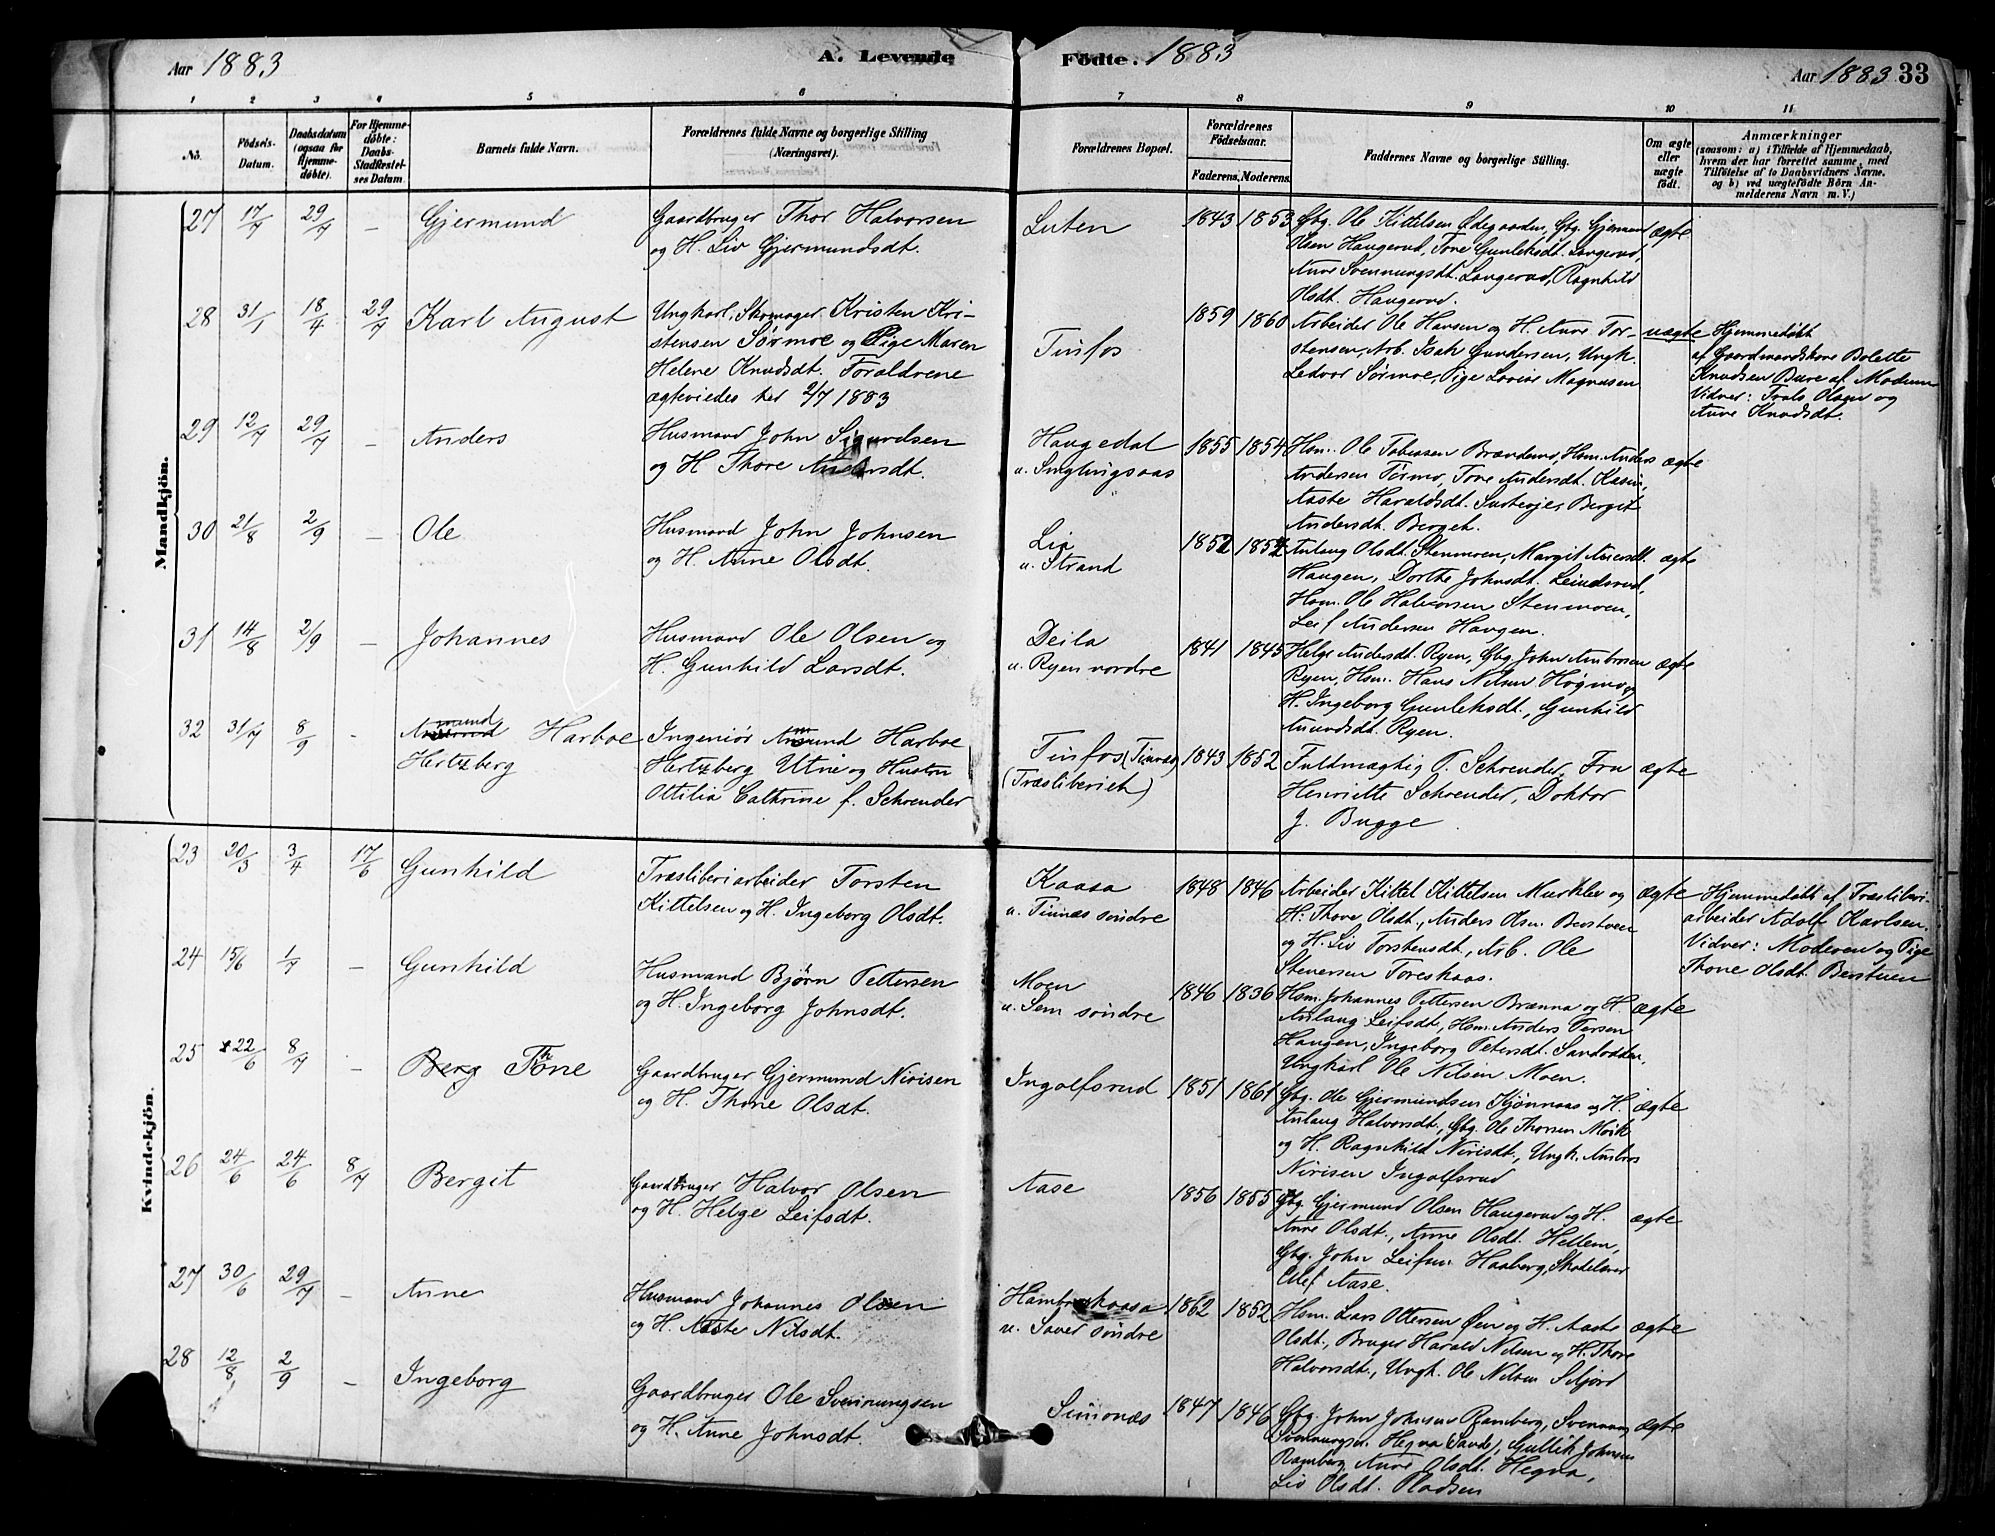 Aar 1883 A. Levende Fødte. 1883 Aar 1883 33
1 2 3 4 5 6 7 8 9 10 11
No. Fødsels-Datum. Daabsdatum (ogsaa for Hjemmedøbte). For Hjemmedøbte: Daabs-Stadfæstelses Datum. Barnets fulde Navn. Forældrenes fulde Navne og borgerlige Stilling (Næringsvei). Forældrenes Bopæl. Forældrenes Fødselsaar. Faderens. Moderens. Faddernes Navne og borgerlige Stilling. Om ægte eller uægte født. Anmærkninger (saasom: a) i Tilfælde af Hjemmedaab, hvem der har forrettet samme, med Tilføielse af to Daabsvidners Navne. og b) ved uægtefødte Børn Anmelderens Navn m. V.)
Mandkjön.
27 17/7 29/7 – Gjermund Gaardbruger Thor Halvorsen Luten 1843 1853 Gbg. Ole Kittelsen Ødegaarden, Gbg. Gjermund ægte
og H. Liv Gjermundsdt. Olsen Haugerud, Tone Gunleksdt. Langerud,
Anne Svennungsdt. Langerud, Ragnhild
Olsdt. Haugerud.
28 31/1 18/4 29/7 Karl August Ungkarl, Skomager Kristen Kri- Tinfos 1859 1860 Arbeider Ole Hansen og H. Anne Tor- uægte Hjemmedøbt
stensen Sørmoe og Pige Maren stensen, Arb. Isak Gundersen, Ungk. af Gaardmandskone Bolette
Helene Knudsdt. Forældrene Ledvor Sørmoe, Pige Lovise Magnusen Knudsen Bure af Modum
ægteviedes her 2/7 1883 Vidner: Trols Olsen og
Anne Knudsdt.
29 12/7 29/7 – Anders Husmand John Sigurdsen Haugedal 1855 1854 Hsm. Ole Tobiassen Brændene, Hsm. Anders ægte
og H Thore Andersdt. u. Andersen Tørmo, Tone Andersdt. Kasin,
Aaste Haraldsdt. Berget
Andersdt. Berget.
30 21/8 2/9 – Ole Husmand John Johnsen Lia 1852 1854 Aulaug Olsdt. Stenmoen, Margit ægte
og H. Anne Olsdt. u. Strand Haugen, Dorthe Johnsdt. Leindsrud,
Hsm. Ole Halvorsen Stenmoen,
Leif Andersen Haugen.
31 14/8 2/9 – Johannes Husmand Ole Olsen og Deila 1841 1845 Helge Andersdt. Ryen, Gbg John Ambrosen ægte
H. Gunhild Larsdt. u. Ryen nordre Ryen, Hsm. Hans Nilsen Høgmo og
H. Ingeborg Gunleksdt., Gunhild
Amundsdt. Ryen.
32 31/7 8/9 – Amund Harboe Ingeniør Amund Harboe Tinfos (Tinnæs) 1843 1852 Fuldmægtig P. Schrender, Fru ægte
Hertzberg Hertzberg Utne og Hustru (Træsliberiet) Henriette Schrender, Doktor
Ottilia Cathrine f. Schrender J. Bugge
Kvindekjön.
23 20/3 3/4 17/6 Gunhild Træsliberiarbeider Torsten Kaasa 1848 1846 Arbeider Kittel Kittelsen Murklev og ægte Hjemmedøbt af Træsliberi-
Kittelsen og H. Ingeborg Olsdt. u. Tinnæs søndre H. Thone Olsdt., Anders Olsen Berstuen arbeider Adolf Karlsen.
og H. Liv Torstensdt., Arb. Ole Vidner: Moderen og Pige
Stenersen Toreskaas. Thone Olsdt. Berstuen
24 15/6 1/7 – Gunhild Husmand Bjørn Pettersen Moen 1846 1836 Hsm. Johannes Pettersen Brænna og H. ægte
og H. Ingeborg Johnsdt. u. Sem søndre Aulaug Leifsdt., Hsm. Anders Persen
Haugen, Ingeborg Petersdt. Sandvadden,
Ungkarl Ole Nilsen Moen.
25 22/6 8/7 – Berg Thone Gaardbruger Gjermund Nirisen Ingolfsrud 1851 1861 Gbg. Ole Gjermundsen Kjønnaas og H. ægte
og H. Thone Olsdt. Aulaug Halvorsdt., Gbg. Ole Thorsen Moik
og H. Ragnhild Nirisdt., Ungk. Ambros
Nirisen Ingolfsrud
26 24/6 24/6 8/7 Bergit Gaardbruger Halvor Olsen Aase 1856 1855 Gbg. Gjermund Olsen Haugerud og H. ægte
og H. Helge Leifsdt. Anne Olsdt., Anne Olsdt. Hellem,
Gbg. John Leifsen Haaberg, Skolelærer
Ellef Aase.
27 30/6 29/7 – Anne Husmand Johannes Olsen Hambrokaasa 1862 1852 Hsm. Lars Ottersen Øen og H. Aaste ægte
og H. Aaste Nilsdt. u. Saver søndre Olsdt., Bruger Harald Nilsen og H. Thore
Halvorsdt., Ungk. Ole Nilsen Seljord
28 12/8 2/9 – Ingeborg Gaardbruger Ole Svennungsen Simonæs 1847 1846 Gbg. John Johnsen Ramberg, Svennung ægte
og H. Anne Johnsdt. Svennungsen Hegna (Sande), Gullik Johnsen
Ramberg, Anne Olsdt. Hegna,
Liv Olsdt. Pladsen